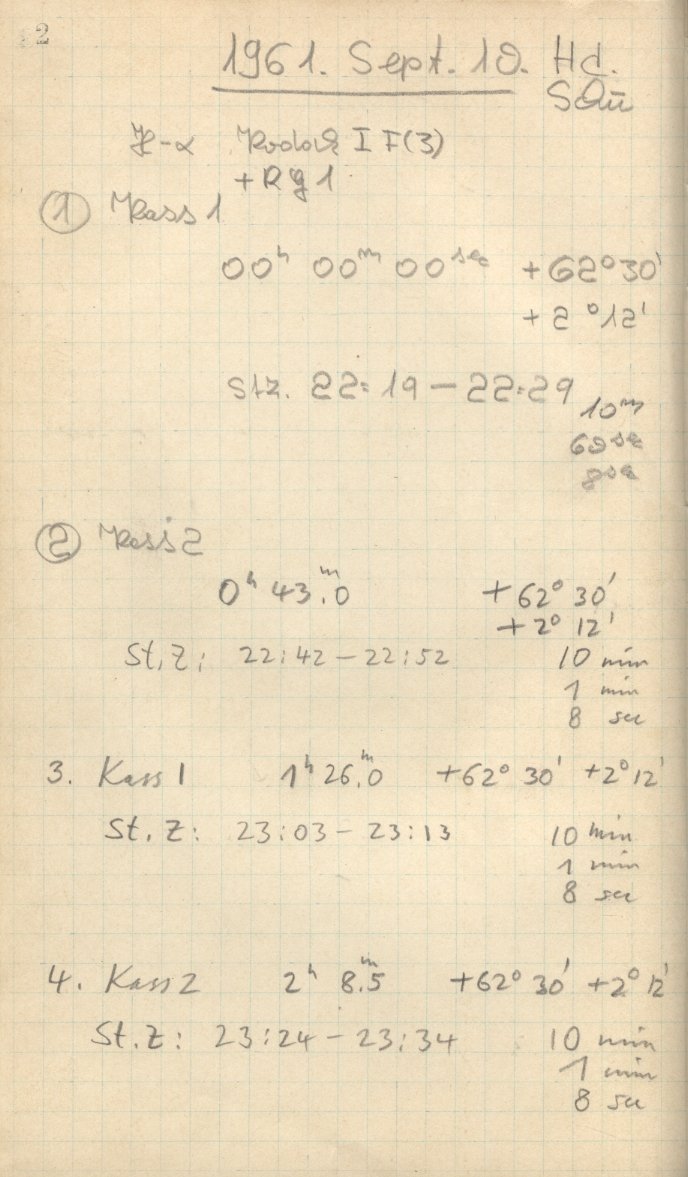 2
1961. Sept. 10. Hd.
SQü
H-α Kodak I F(3)
+ R g 1
① Kass 1
00ʰ 00ᵐ 00ˢᵉᶜ +62°30'
+ 2°12'
Stz. 22:19 — 22:29 10ᵐ
60 sec
8 sec
② Kass 2
0ʰ 43ᵐ.0 +62° 30'
+2° 12'
St.Z: 22:42 — 22:52 10 min
1 min
8 sec
3. Kass 1 1ʰ 26ᵐ.0 +62° 30' +2° 12'
St.Z: 23:03 — 23:13 10 min
1 min
8 sec
4. Kass 2 2ʰ 8ᵐ.5 +62° 30' +2° 12'
St.Z: 23:24 — 23:34 10 min
1 min
8 sec